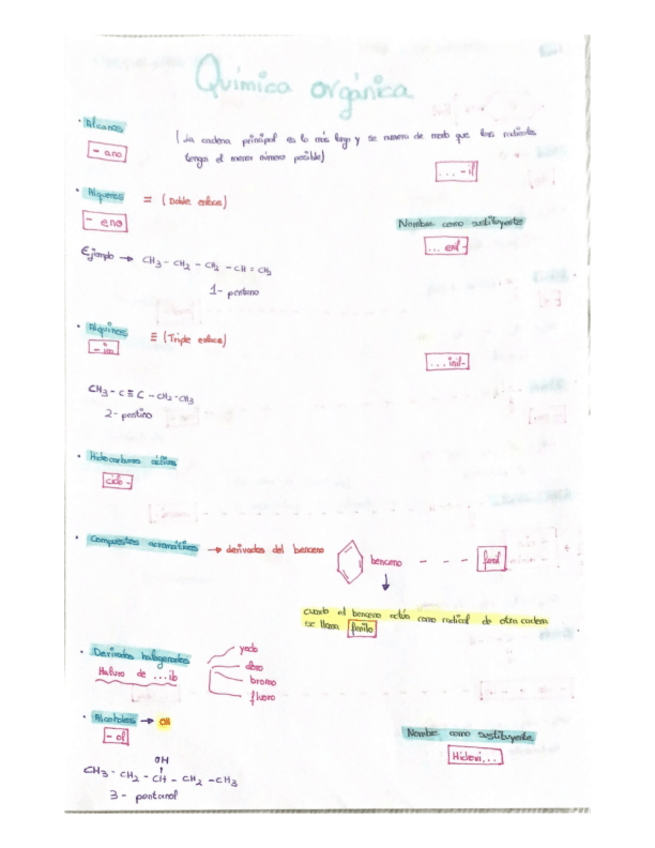 Química orgánica
• Alcanos
- ano
(La cadena principal es la más larga y se numera de modo que los radicales
tenga el menor número posible)
... -il
• Alquenos = (Doble enlace)
- eno
Nombre como sustituyente
... enil-
Ejemplo → CH3 - CH2 - CH2 - CH = CH2
1- penteno
• Alquinos ≡ (Triple enlace)
- ino
... inil-
CH3 - C ≡ C - CH2 - CH3
2- pentino
• Hidrocarburos cíclicos
ciclo -
• Compuestos aromáticos → derivados del benceno
benceno - - - fenil
cuando el benceno actúa como radical de otra cadena
se llama fenilo
• Derivados halogenados
Haluro de ...ilo
yodo
cloro
bromo
fluoro
• Alcoholes → OH
- ol
Nombre como sustituyente
Hidroxi...
OH
CH3 - CH2 - CH - CH2 - CH3
3 - pentanol